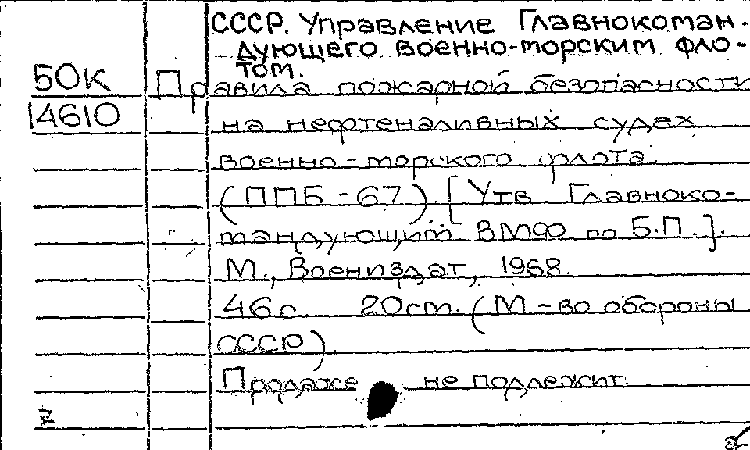 СССР. Управление Главнокоман-
дующего военно-морским фло-
том.
50к Правила пожарной безопасности
14610 на нефтеналивных судах
военно-морского флота
(ППБ-67). [Утв Главноко-
мандующим ВМФ по Б.П.].
М., Воениздат, 1968.
46с. 20см. (М-во обороны
СССР).
Продаже не подлежит.